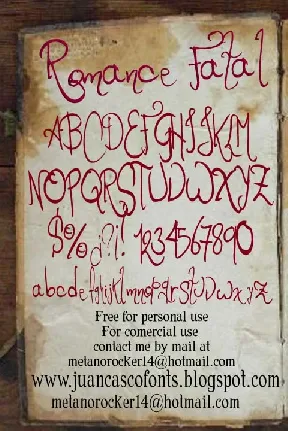 Romance Fatal
ABCDEFGHIJKLM
NOPQRSTUVWXYZ
$%¿?¡! 1234567890
abcdefghijklmnopqrstuvwxyz
Free for personal use
For comercial use
contact me by mail at
melanorocker14@hotmail.com
www.juancascofonts.blogspot.com
melanorocker14@hotmail.com